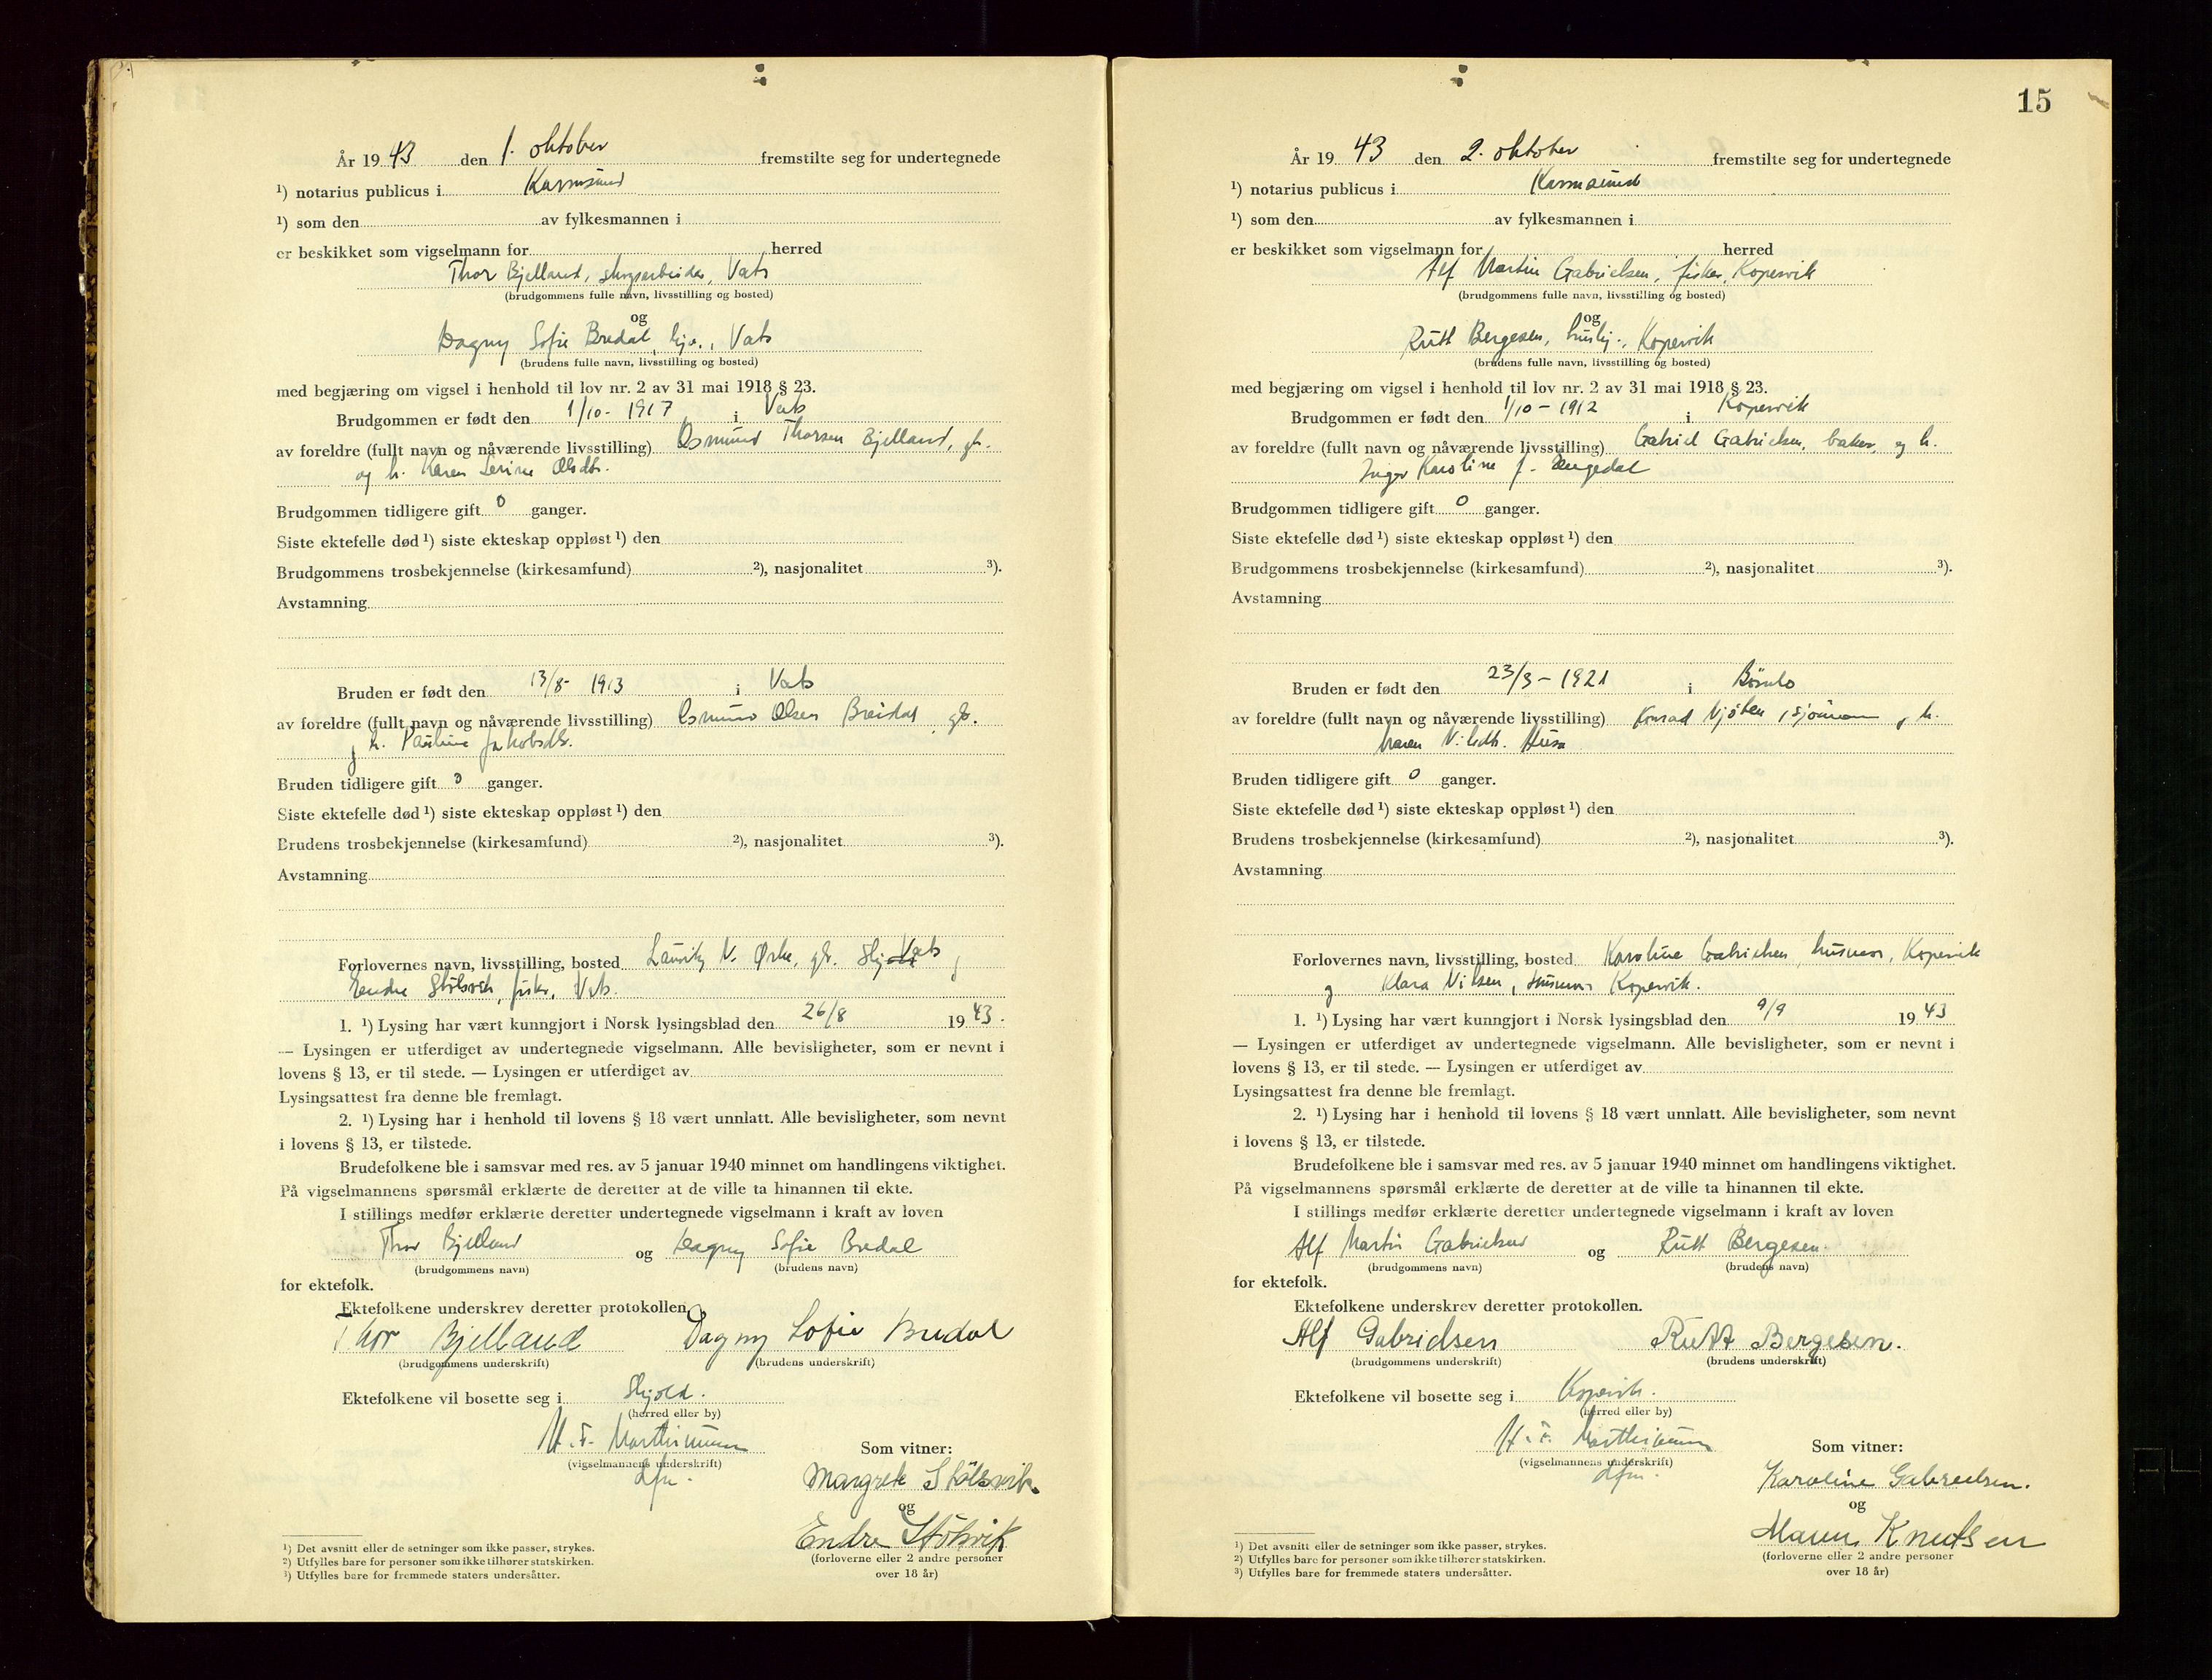 År 19 43 den 1. oktober fremstilte seg for undertegnede
¹) notarius publicus i Karmsund
¹) som den av fylkesmannen i
er beskikket som vigselmann for herred
Thor Bjelland, skogsarbeider, Vats
(brudgommens fulle navn, livsstilling og bosted)
og
Dagny Sofie Bredal, hj., Vats
(brudens fulle navn, livsstilling og bosted)
med begjæring om vigsel i henhold til lov nr. 2 av 31 mai 1918 § 23.
Brudgommen er født den 1/10- 1917 i Vats
av foreldre (fullt navn og nåværende livsstilling) Osmund Thorsen Bjelland, gb.
og h. Karen Serine Olsdtr.
Brudgommen tidligere gift 0 ganger.
Siste ektefelle død ¹) siste ekteskap oppløst ¹) den
Brudgommens trosbekjennelse (kirkesamfund) ²), nasjonalitet ³).
Avstamning
Bruden er født den 13/8- 1913 i Vats
av foreldre (fullt navn og nåværende livsstilling) Osmund Olsen Breidal, gb.
og h. Pauline Jakobsdtr.
Bruden tidligere gift 0 ganger.
Siste ektefelle død ¹) siste ekteskap oppløst ¹) den
Brudens trosbekjennelse (kirkesamfund) ²), nasjonalitet ³).
Avstamning
Forlovernes navn, livsstilling, bosted Lauritz V. Ørke, gb. Vats og
Endre Stølsvik, fisker, Vats.
1. ¹) Lysing har vært kunngjort i Norsk lysingsblad den 26/8 19 43.
— Lysingen er utferdiget av undertegnede vigselmann. Alle bevisligheter, som er nevnt i
lovens § 13, er til stede. — Lysingen er utferdiget av
Lysingsattest fra denne ble fremlagt.
2. ¹) Lysing har i henhold til lovens § 18 vært unnlatt. Alle bevisligheter, som nevnt
i lovens § 13, er tilstede.
Brudefolkene ble i samsvar med res. av 5 januar 1940 minnet om handlingens viktighet.
På vigselmannens spørsmål erklærte de deretter at de ville ta hinannen til ekte.
I stillings medfør erklærte deretter undertegnede vigselmann i kraft av loven
Thor Bjelland og Dagny Sofie Bredal
(brudgommens navn) (brudens navn)
for ektefolk.
Ektefolkene underskrev deretter protokollen.
Thor Bjelland Dagny Sofie Bredal
(brudgommens underskrift) (brudens underskrift)
Ektefolkene vil bosette seg i Skjold.
(herred eller by)
(vigselmannens underskrift)
Som vitner:
Margrete Stølsvik.
og
Endre Stølsvik
(forloverne eller 2 andre personer
over 18 år)
¹) Det avsnitt eller de setninger som ikke passer, strykes.
²) Utfylles bare for personer som ikke tilhører statskirken.
³) Utfylles bare for fremmede staters undersåtter.
15
År 19 43 den 2. oktober fremstilte seg for undertegnede
¹) notarius publicus i Karmsund
¹) som den av fylkesmannen i
er beskikket som vigselmann for herred
Alf Martin Gabrielsen, fisker, Kopervik
(brudgommens fulle navn, livsstilling og bosted)
og
Rutt Bergesen, hushj., Kopervik
(brudens fulle navn, livsstilling og bosted)
med begjæring om vigsel i henhold til lov nr. 2 av 31 mai 1918 § 23.
Brudgommen er født den 1/10 - 1912 i Kopervik
av foreldre (fullt navn og nåværende livsstilling) Gabriel Gabrielsen, baker, og h.
Inger Karoline f.
Brudgommen tidligere gift 0 ganger.
Siste ektefelle død ¹) siste ekteskap oppløst ¹) den
Brudgommens trosbekjennelse (kirkesamfund) ²), nasjonalitet ³).
Avstamning
Bruden er født den 23/3 - 1921 i Bömlo
av foreldre (fullt navn og nåværende livsstilling) Konrad sjömann og h.
Maren
Bruden tidligere gift 0 ganger.
Siste ektefelle død ¹) siste ekteskap oppløst ¹) den
Brudens trosbekjennelse (kirkesamfund) ²), nasjonalitet ³).
Avstamning
Forlovernes navn, livsstilling, bosted Karoline Gabrielsen, husmor, Kopervik
og Klara Nilsen, husmor Kopervik.
1. ¹) Lysing har vært kunngjort i Norsk lysingsblad den 9/9 19 43
— Lysingen er utferdiget av undertegnede vigselmann. Alle bevisligheter, som er nevnt i
lovens § 13, er til stede. — Lysingen er utferdiget av
Lysingsattest fra denne ble fremlagt.
2. ¹) Lysing har i henhold til lovens § 18 vært unnlatt. Alle bevisligheter, som nevnt
i lovens § 13, er tilstede.
Brudefolkene ble i samsvar med res. av 5 januar 1940 minnet om handlingens viktighet.
På vigselmannens spørsmål erklærte de deretter at de ville ta hinannen til ekte.
I stillings medfør erklærte deretter undertegnede vigselmann i kraft av loven
Alf Martin Gabrielsen og Rutt Bergesen.
(brudgommens navn) (brudens navn)
for ektefolk.
Ektefolkene underskrev deretter protokollen.
Alf Gabrielsen Rutt Bergesen.
(brudgommens underskrift) (brudens underskrift)
Ektefolkene vil bosette seg i Kopervik.
(herred eller by)
(vigselmannens underskrift)
Som vitner:
Karoline Gabrielsen.
og
Knutsen
(forloverne eller 2 andre personer
over 18 år)
¹) Det avsnitt eller de setninger som ikke passer, strykes.
²) Utfylles bare for personer som ikke tilhører statskirken.
³) Utfylles bare for fremmede staters undersåtter.